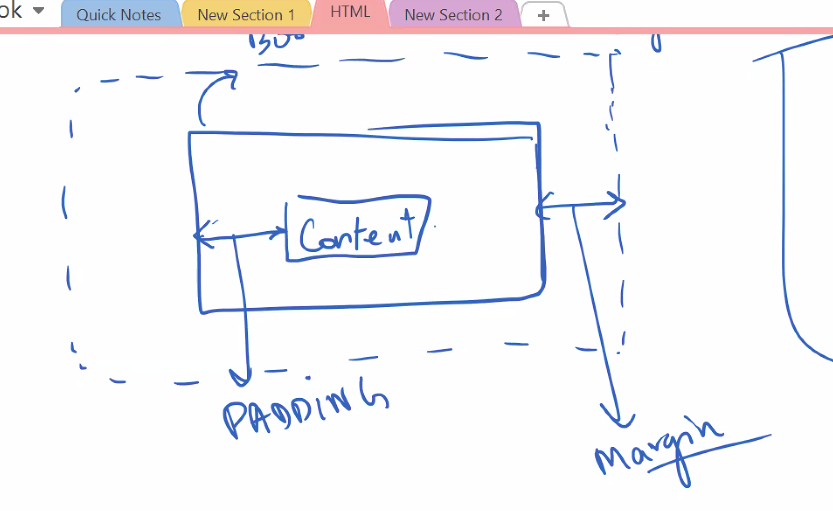 ok
Quick Notes
New Section 1
HTML
New Section 2
+
Content
PADDING
Margin